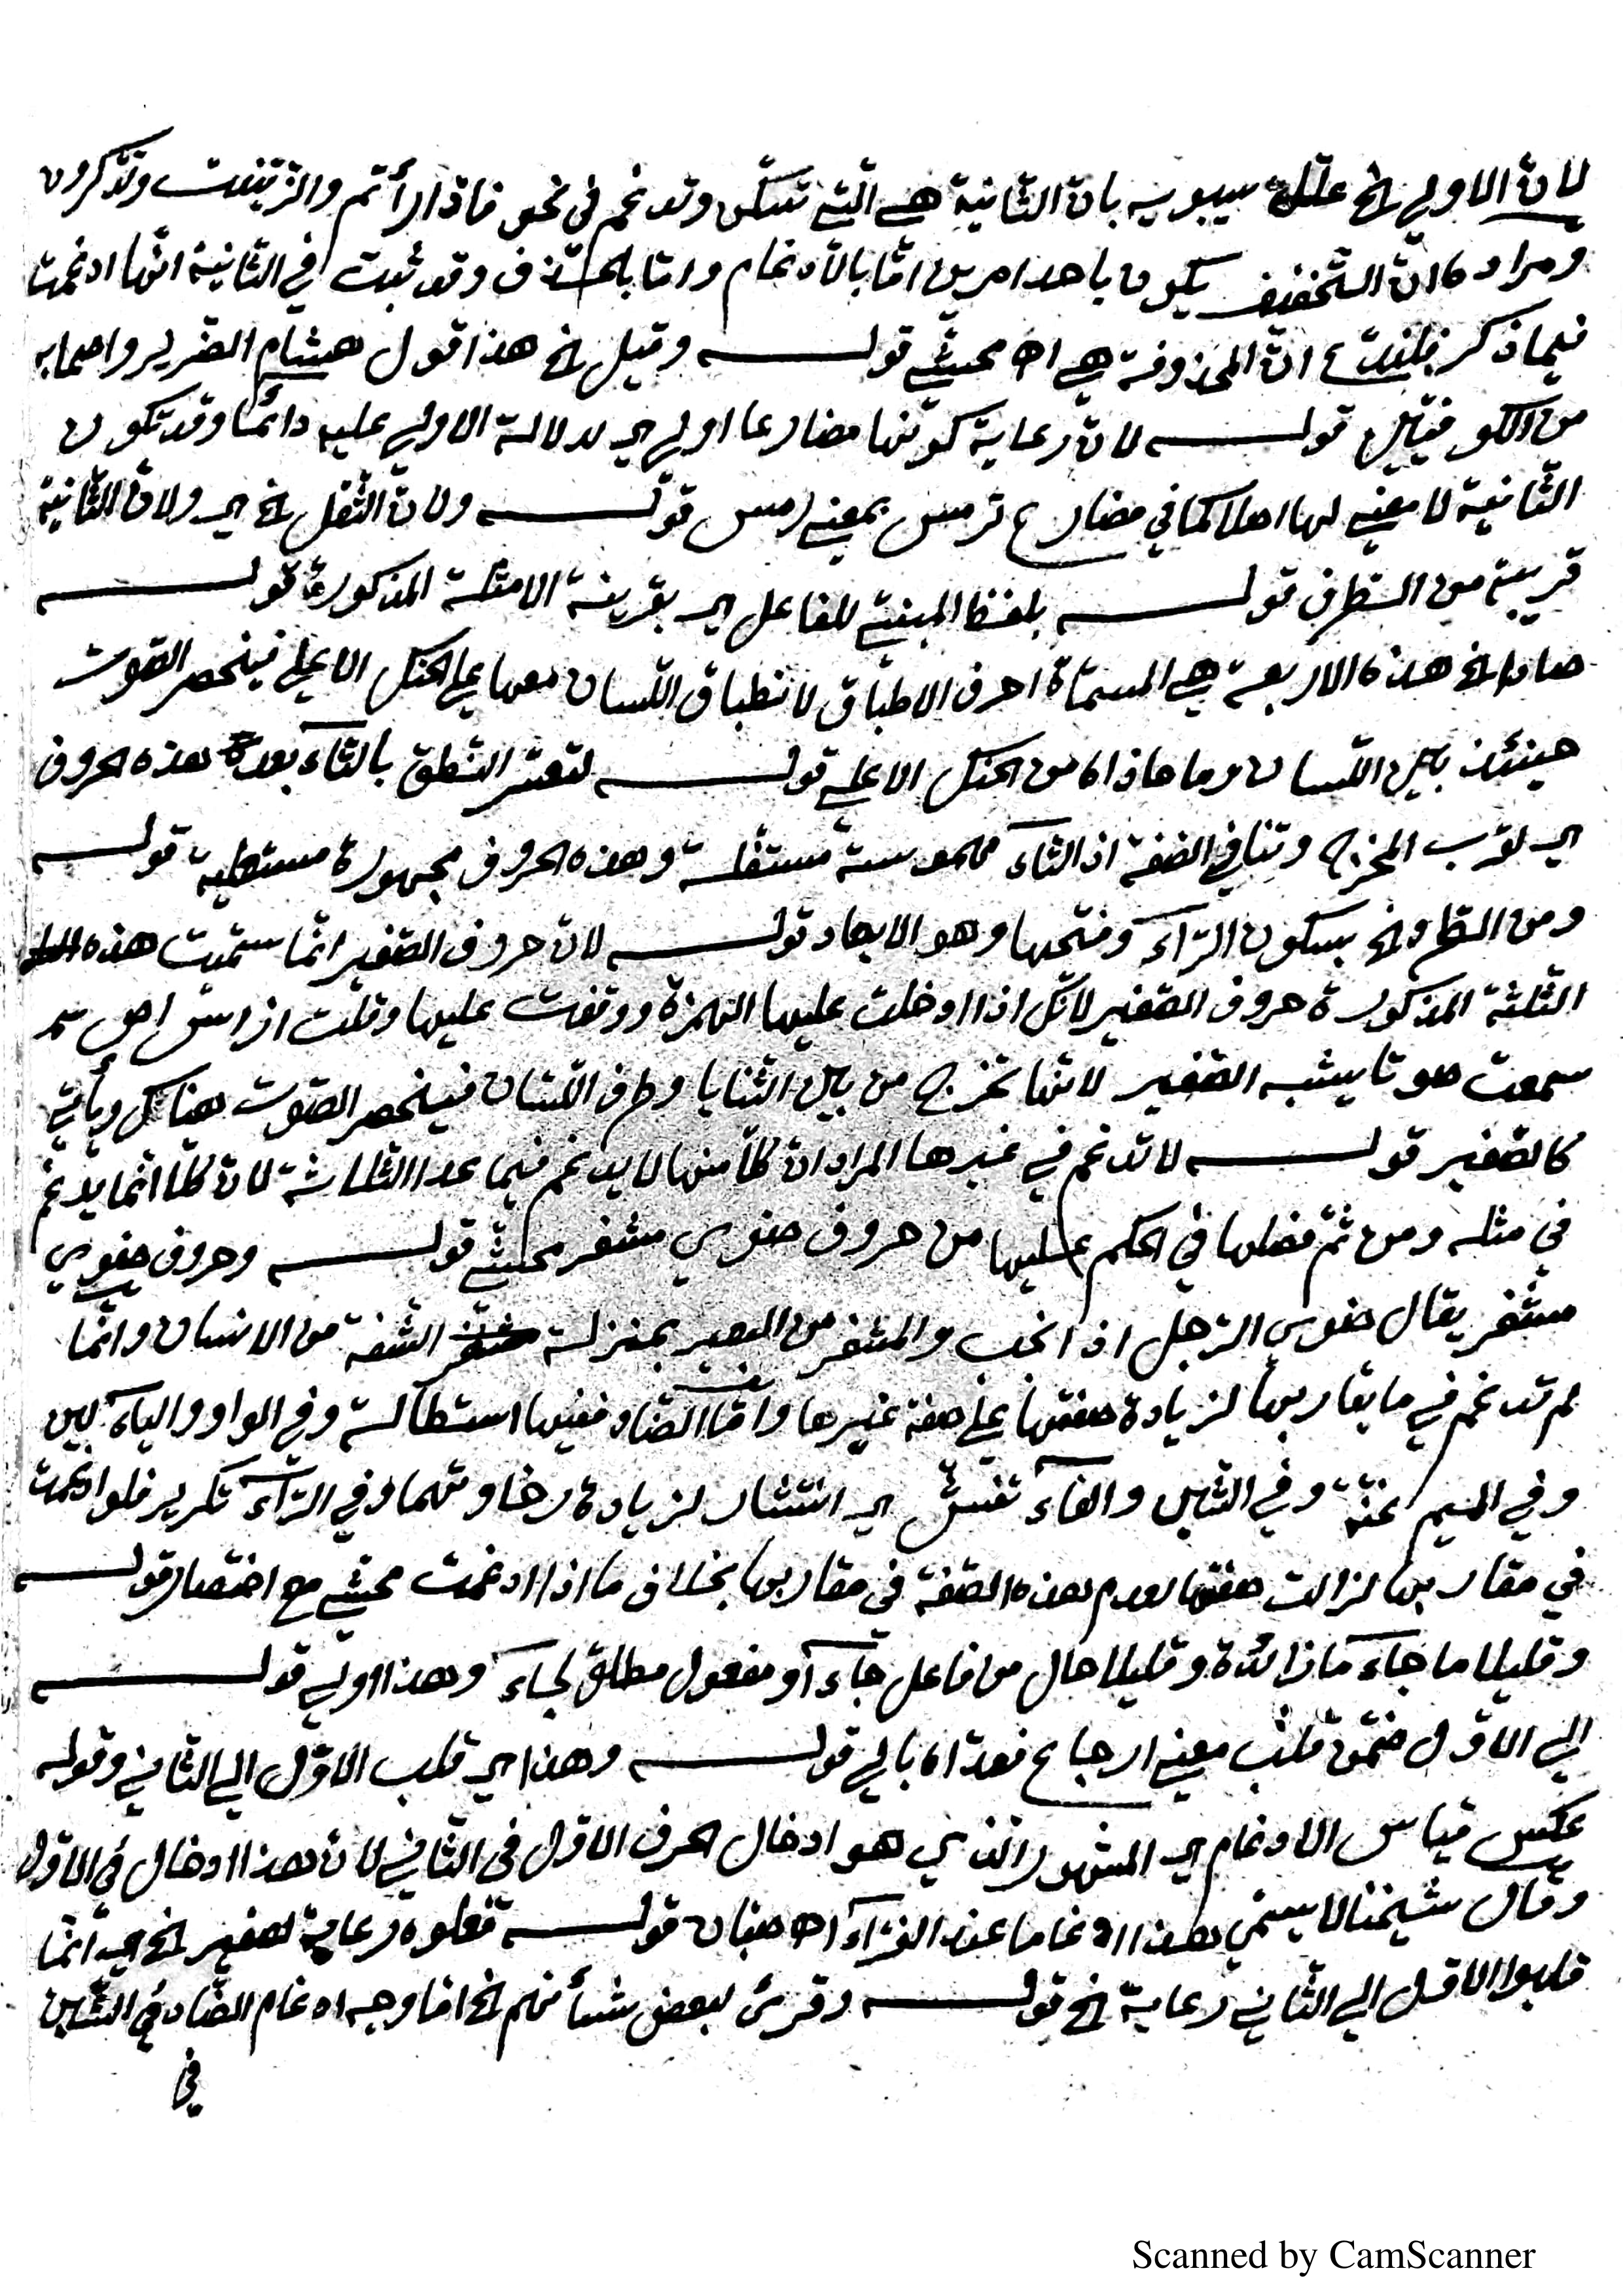 لان الاولى الخ علله سيبويه بان الثانية هي التي تسكن وتدغم في نحو فادّارأتم وازّيّنت وتذّكرون
ومراده ان التخفيف يكون باحد امرين امّا بالادغام وامّا بالحذف وقد ثبت في الثانية انّها ادغمت
فيما ذكر فليدّع انّ المحذوفة هي اه محشّي قوله وقيل الخ هذا قول هشام الضرير واصحابه
من الكوفيّين قوله لانّ رعاية كونها مضارعا اولى اي لدلالة الاولى عليه دائمًا وقد تكون
الثّانية لا معنى لها اصلا كما في مضارع ترمس بمعنى رمس قوله ولانّ الثقل الخ اي ولانّ الثّانية
قريبة من الطّرف قوله بلفظ المبنيّ للفاعل اي بقرينة الامثلة المذكورة قوله
صادا الخ هذه الاربعة هي المسمّاة احرف الاطباق لانطباق اللّسان معها على الحنك الاعلى فينحصر الصّوت
حينئذ بين اللّسان وما حاذاه من الحنك الاعلى قوله لتعسّر النّطق بالتّاء بعد هذه الحروف
اي لقرب المخرج وتنافي الصّفة اذ التّاء مهموسة مستفلة وهذه الحروف مجهورة مستعلية قوله
ومن الطرد الخ بسكون الرّاء وفتحها وهو الابعاد قوله لانّ حروف الصّفير انّما سمّيت هذه
الثلثة المذكورة حروف الصّفير لانّك اذا ادخلت عليها الهمزة ووقفت عليها وقلت از اس اص
سمعت صوتا يشبه الصّفير لانّها تخرج من بين الثنايا وطرف اللّسان فينحصر الصّوت هناك ويأتي
كالصّفير قوله لا تدغم في غيرها المراد ان كلّا منها لا يدغم فيما عدا الثلاثة لانّ كلّا انّما يدغم
في مثله ومن ثمّ فضلها في الحكم عليها من حروف ضوي مشفر محشّي قوله وحروف ضوي
مشفر يقال ضوى الرّجل اذا نحب والمشفر من البعير بمنزلة الشّفة من الانسان وانّما
لم تدغم فيما يقاربها لزيادة صفتها على صفة غيرها وامّا الضّاد ففيها استطالة وفي الواو والياء لين
وفي الميم غنّة وفي الشّين والفاء تفشّي اي انتشار لزيادة رخاوتهما وفي الرّاء تكرير فلو ادغمت
في مقاربها لزالت صفتها لعدم هذه الصّفة في مقاربها بخلاف ما اذا ادغمت محشّي مع اختصار قوله
وقليلا ما جاء ما زائدة وقليلا حال من فاعل جاء او مفعول مطلق لجاء وهذا اولى قوله
الى الاوّل ضمّن قلب معنى ارجاع فعدّاه بالى قوله وهذا اي قلب الاوّل الى الثاني وقوله
عكس قياس الادغام اي المشهور الّذي هو ادخال الحرف الاوّل في الثّاني لانّ هذا ادخال في الاوّل
وقال شيخنا لا يسمّى هذا ادغاما عند القرّاء اه صبان قوله فعلوه رعاية لصفير الخ اي انّما
قلبوا الاوّل الى الثّاني رعاية الخ قوله وقرئ لبعض شأنهم الخ امّا وجه ادغام الضّاد في الشّين
في
Scanned by CamScanner